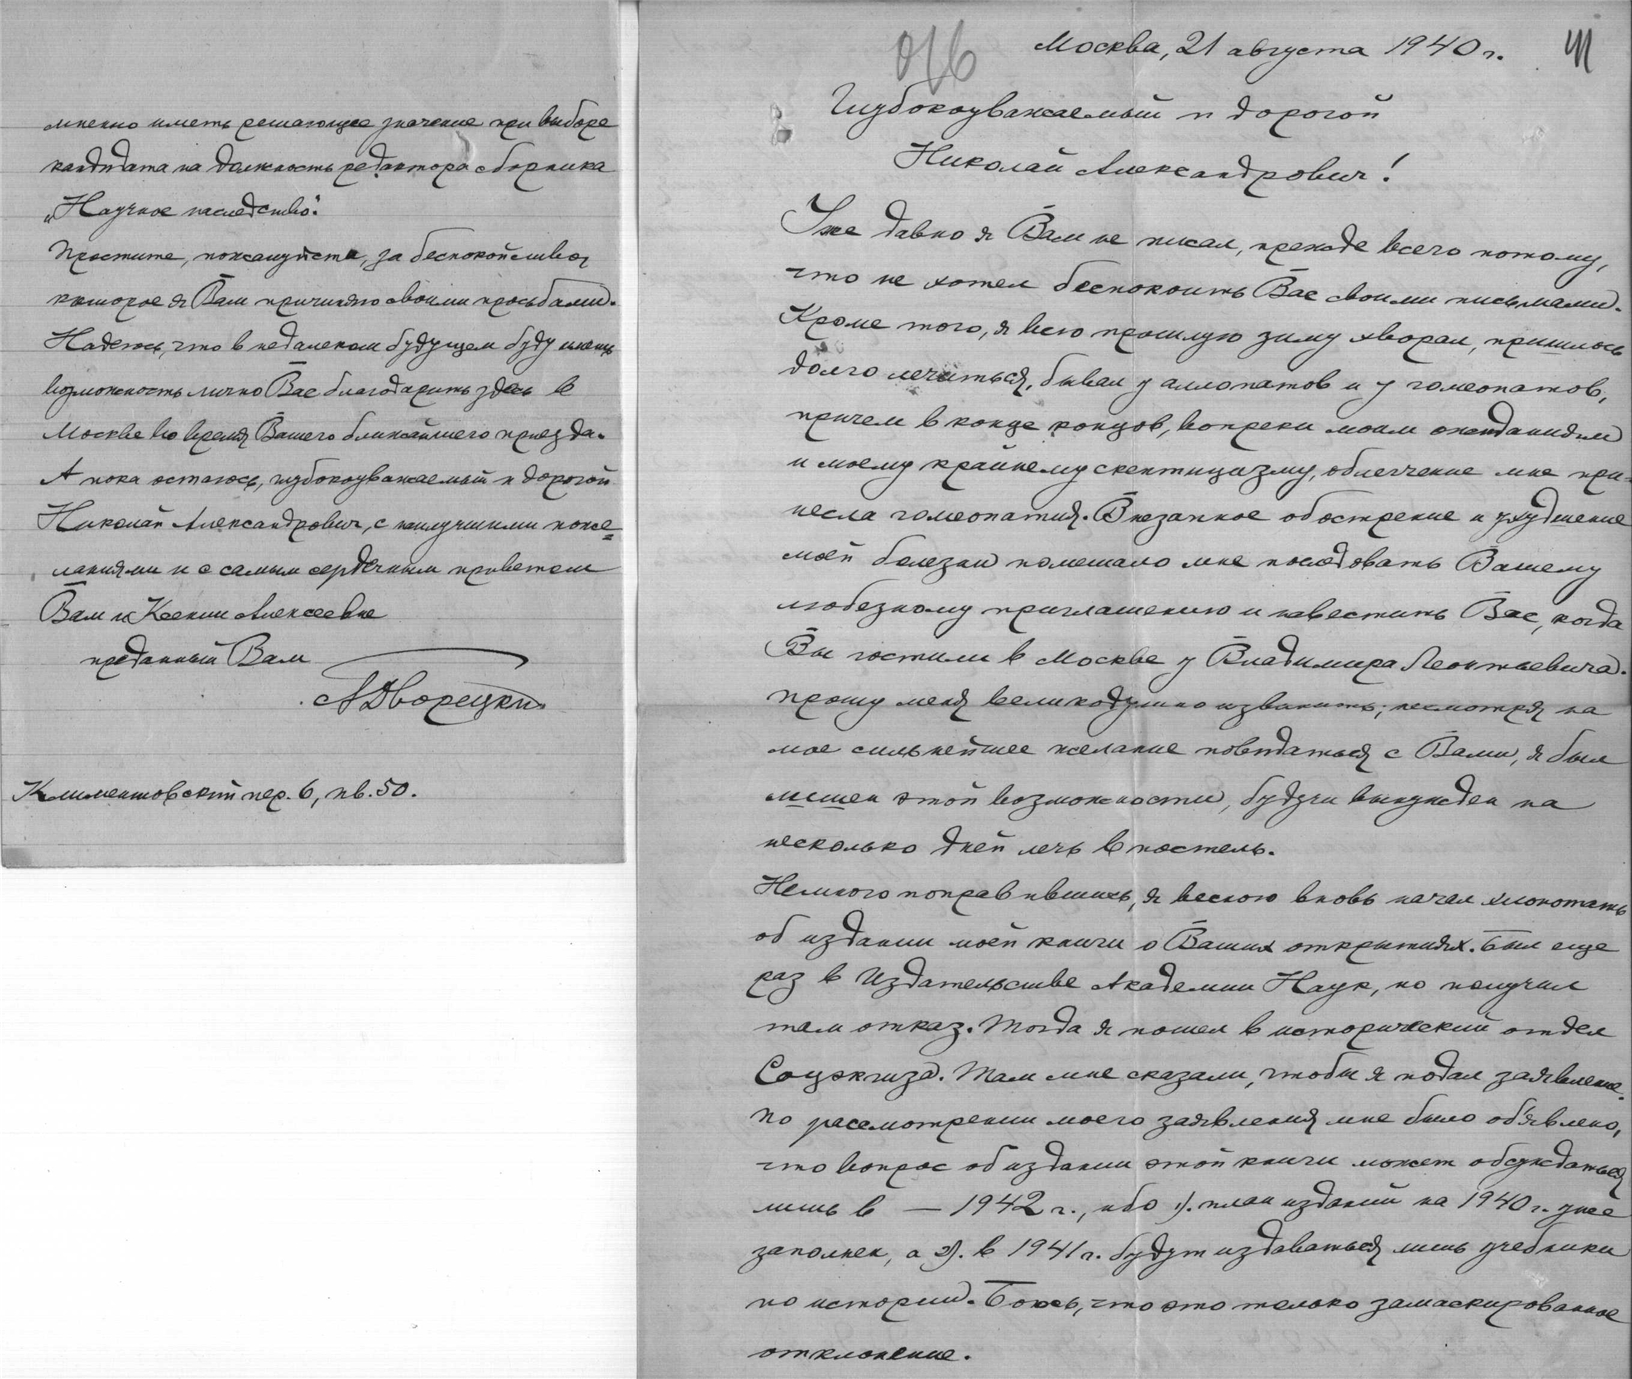 мнению иметь решающее значение при выборе
кандидата на должность редактора сборника
„Научное наследство".
Простите, пожалуйста, за беспокойство,
которое я Вам причиняю своими просьбами.
Надеюсь, что в недалеком будущем буду иметь
возможность лично Вас благодарить здесь в
Москве во время Вашего ближайшего приезда.
А пока остаюсь, глубокоуважаемый и дорогой
Николай Александрович, с наилучшими поже=
ланиями и с самым сердечным приветом
Вам и Ксении Алексеевне
преданный Вам
А Дворецкий
Климентовский пер. 6, кв. 50.
Москва, 21 августа 1940 г.
Глубокоуважаемый и дорогой
Николай Александрович!
Уже давно я Вам не писал, прежде всего потому,
что не хотел беспокоить Вас своими письмами.
Кроме того, я всю прошлую зиму хворал, пришлось
долго лечиться, бывал у аллопатов и у гомеопатов,
причем в конце концов, вопреки моим ожиданиям
и моему крайнему скептицизму, облегчение мне при=
несла гомеопатия. Внезапное обострение и ухудшение
моей болезни помешало мне последовать Вашему
любезному приглашению и навестить Вас, когда
Вы гостили в Москве у Владимира Леонтьевича.
Прошу меня великодушно извинить; несмотря на
мое сильнейшее желание повидаться с Вами, я был
лишен этой возможности, будучи вынужден на
несколько дней лечь в постель.
Немного поправившись, я весною вновь начал хлопотать
об издании моей книги о Ваших открытиях. Был еще
раз в Издательстве Академии Наук, но получил
там отказ. Тогда я пошел в исторический отдел
Соцэкгиза. Там мне сказали, чтобы я подал заявление.
По рассмотрении моего заявления мне было об'явлено,
что вопрос об издании этой книги может обсуждаться
лишь в — 1942 г., ибо 1). план изданий на 1940 г. уже
заполнен, а 2). в 1941 г. будут издаваться лишь учебники
по истории. Боюсь, что это только замаскированное
отклонение.